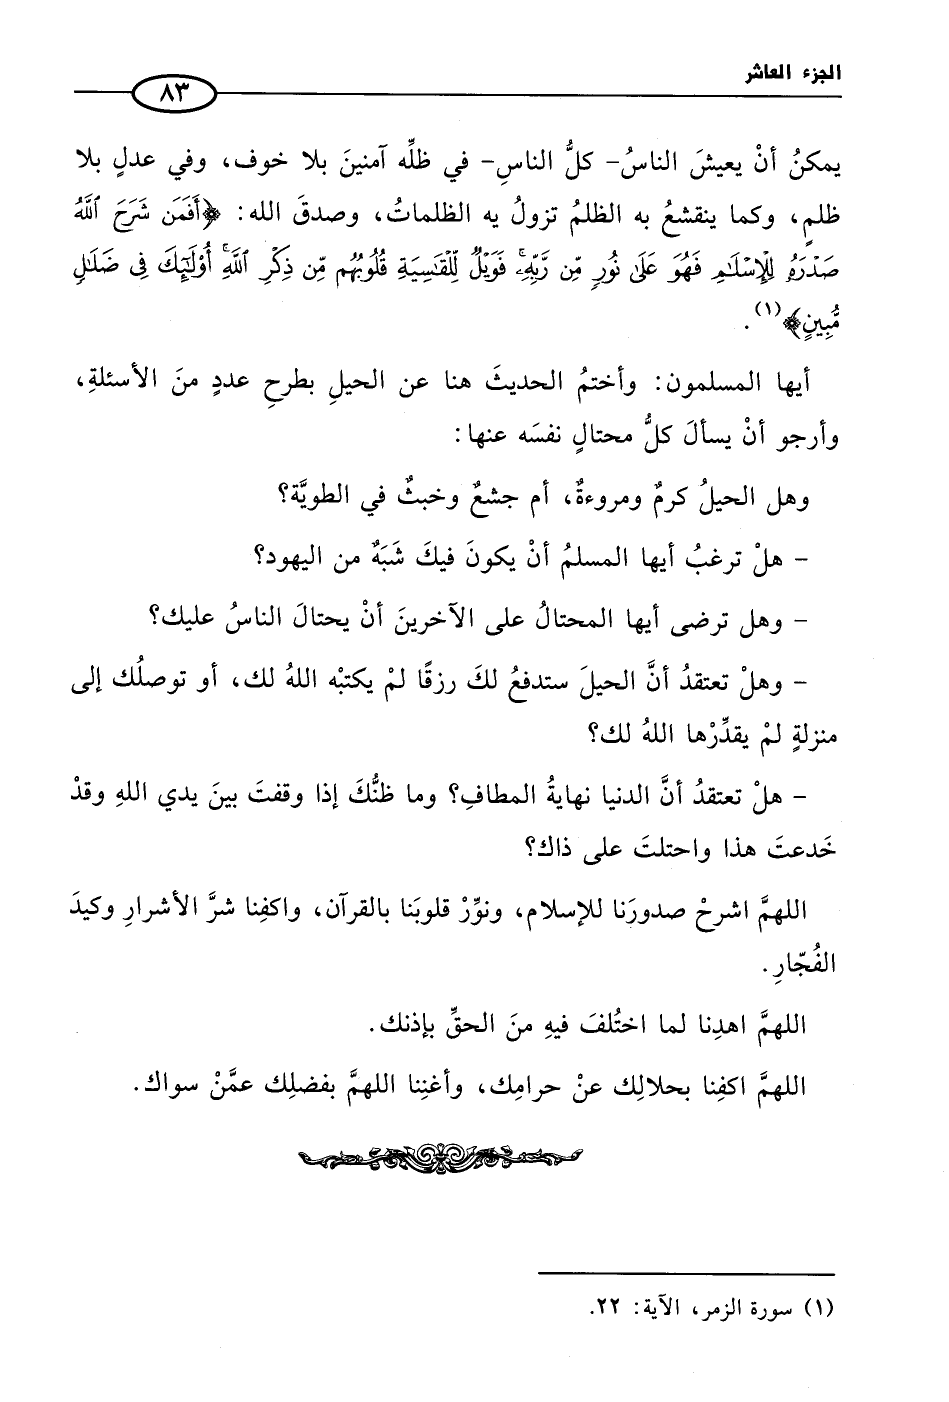 الجزء العاشر
٨٣
يمكنُ أنْ يعيشَ الناسُ- كلُّ الناسِ- في ظلِّه آمنينَ بلا خوف، وفي عدلٍ بلا
ظلمٍ، وكما ينقشعُ به الظلمُ تزولُ يه الظلماتُ، وصدقَ الله: ﴿أَفَمَن شَرَحَ ٱللَّهُ
صَدْرَهُ لِلْإِسْلَٰمِ فَهُوَ عَلَىٰ نُورٍ مِّن رَّبِّهِۦۚ فَوَيْلٌ لِّلْقَٰسِيَةِ قُلُوبُهُم مِّن ذِكْرِ ٱللَّهِۚ أُوْلَٰٓئِكَ فِى ضَلَٰلٍ
مُّبِينٍ﴾(١).
أيها المسلمون: وأختمُ الحديثَ هنا عن الحيلِ بطرحِ عددٍ منَ الأسئلةِ،
وأرجو أنْ يسألَ كلُّ محتالٍ نفسَه عنها:
وهل الحيلُ كرمٌ ومروءةٌ، أم جشعٌ وخبثٌ في الطويَّة؟
- هلْ ترغبُ أيها المسلمُ أنْ يكونَ فيكَ شَبَهٌ من اليهود؟
- وهل ترضى أيها المحتالُ على الآخرينَ أنْ يحتالَ الناسُ عليك؟
- وهلْ تعتقدُ أنَّ الحيلَ ستدفعُ لكَ رزقًا لمْ يكتبْه اللهُ لك، أو توصلُك إلى
منزلةٍ لمْ يقدِّرْها اللهُ لك؟
- هلْ تعتقدُ أنَّ الدنيا نهايةُ المطافِ؟ وما ظنُّكَ إذا وقفتَ بينَ يدي اللهِ وقدْ
خَدعتَ هذا واحتلتَ على ذاك؟
اللهمَّ اشرحْ صدورَنا للإسلام، ونوِّرْ قلوبَنا بالقرآن، واكفِنا شرَّ الأشرارِ وكيدَ
الفُجّارِ.
اللهمَّ اهدِنا لما اختُلفَ فيهِ منَ الحقِّ بإذنك.
اللهمَّ اكفِنا بحلالِك عنْ حرامِك، وأغنِنا اللهمَّ بفضلِك عمَّنْ سواك.
(١) سورة الزمر، الآية: ٢٢.